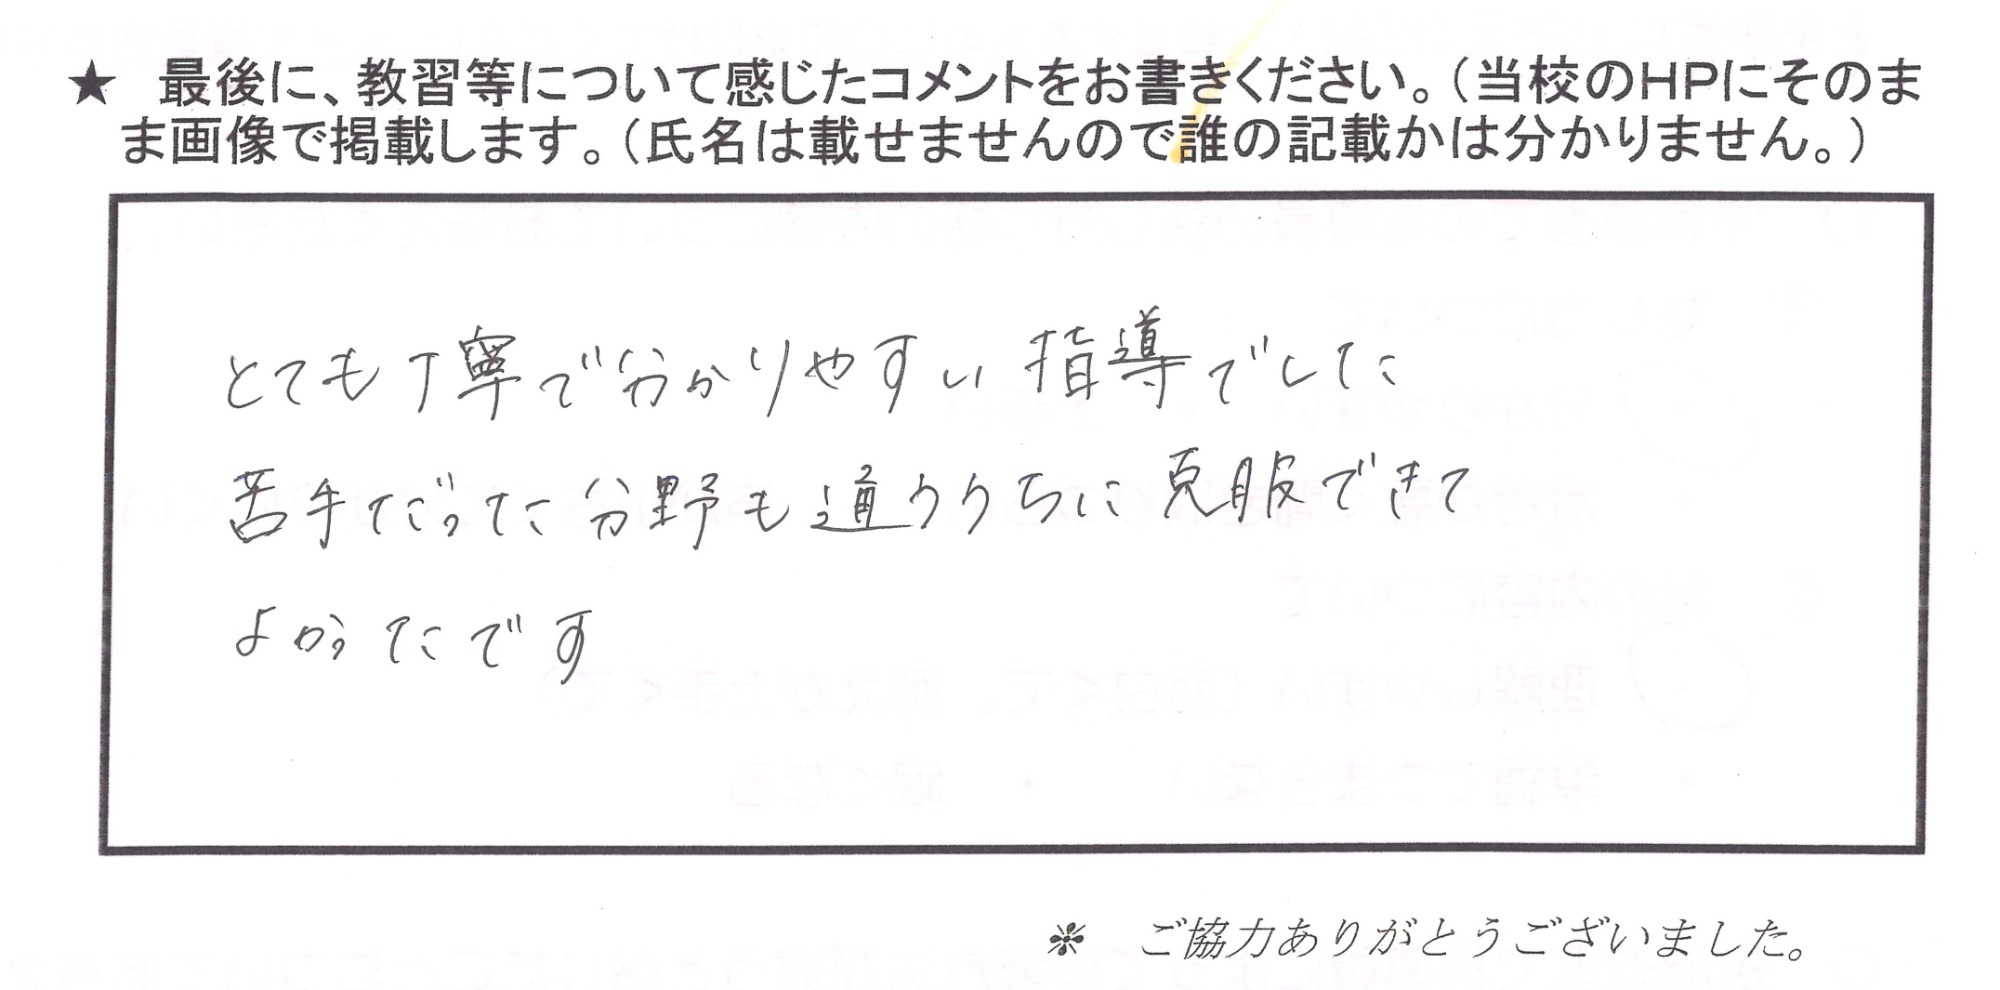 ★ 最後に、教習等について感じたコメントをお書きください。（当校のHPにそのま
ま画像で掲載します。（氏名は載せませんので誰の記載かは分かりません。）
とても丁寧で分かりやすい指導でした
苦手だった分野も通ううちに克服できて
よかったです
※ ご協力ありがとうございました。